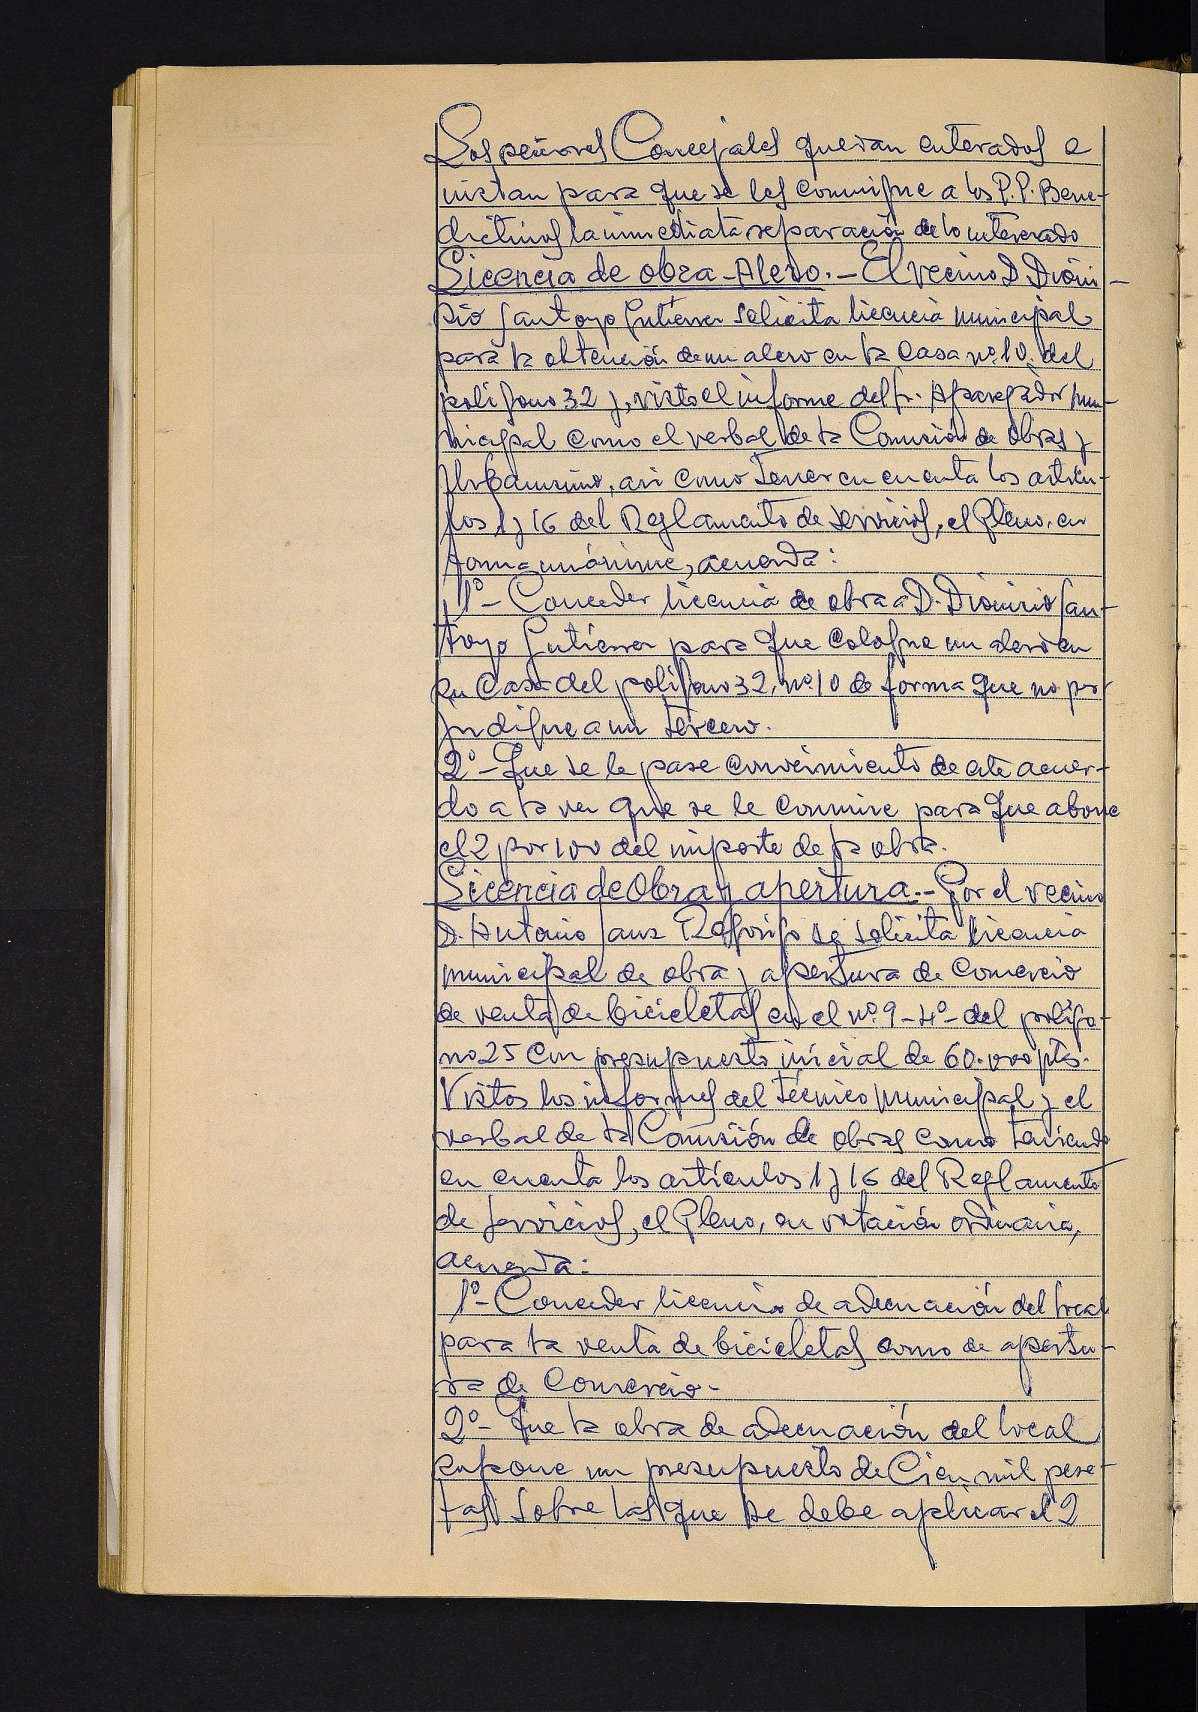 Los señores Concejales quedan enterados e
instan para que se les conmine a los P.P. Bene-
dictinos la inmediata separación de lo interesado
Licencia de obra-Alero.- El vecino D. Dioni-
sio Santoyo Gutiérrez solicita licencia municipal
para la obtención de un alero en la Casa nº 10 del
polígono 32 y, visto el informe del Sr. Aparejador mu-
nicipal como el verbal de la Comisión de obras y
Urbanismo, así como tener en cuenta los artícu-
los 1 y 16 del Reglamento de Servicios, el Pleno, en
forma unánime, acuerda:
1º- Conceder licencia de obra a D. Dionisio San-
toyo Gutiérrez para que coloque un alero en
su Casa del polígono 32, nº 10 de forma que no per-
judique a un tercero.
2º- Que se le pase conocimiento de este acuer-
do a la vez que se le conmine para que abone
el 2 por 100 del importe de la obra.
Licencia de Obra y apertura.- Por el vecino
D. Antonio Sanz se solicita licencia
municipal de obra y apertura de Comercio
de venta de bicicletas en el nº 9-4º- del polígo-
no 25 con presupuesto inicial de 60.000 pts.
Vistos los informes del Técnico Municipal y el
verbal de la Comisión de obras como teniendo
en cuenta los artículos 1 y 16 del Reglamento
de Servicios, el Pleno, en votación ordinaria,
acuerda:
1º- Conceder licencia de adecuación del local
para la venta de bicicletas como de apertu-
ra de Comercio-
2º- Que la obra de adecuación del local
supone un presupuesto de Cien mil pese-
tas sobre las que se debe aplicar el 2